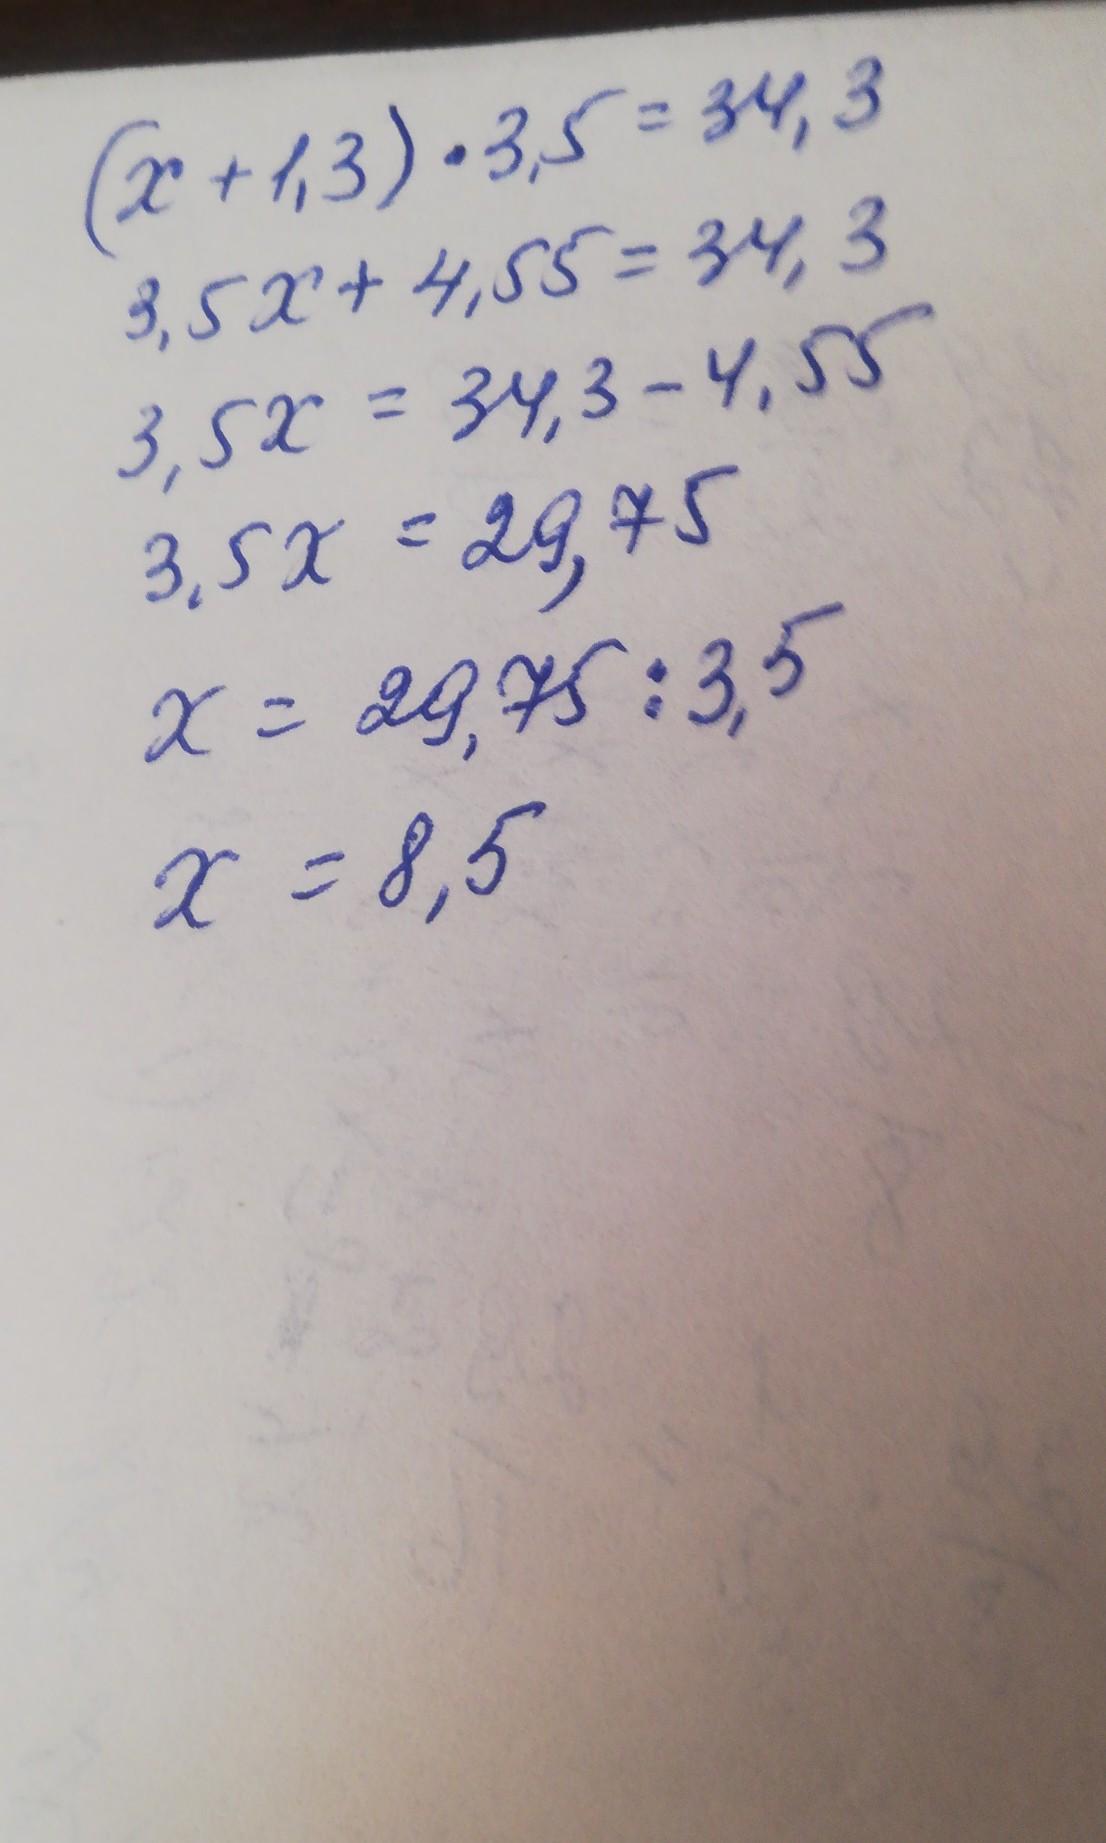 (x + 1,3) · 3,5 = 34,3
3,5x + 4,55 = 34,3
3,5x = 34,3 - 4,55
3,5x = 29,75
x = 29,75 : 3,5
x = 8,5